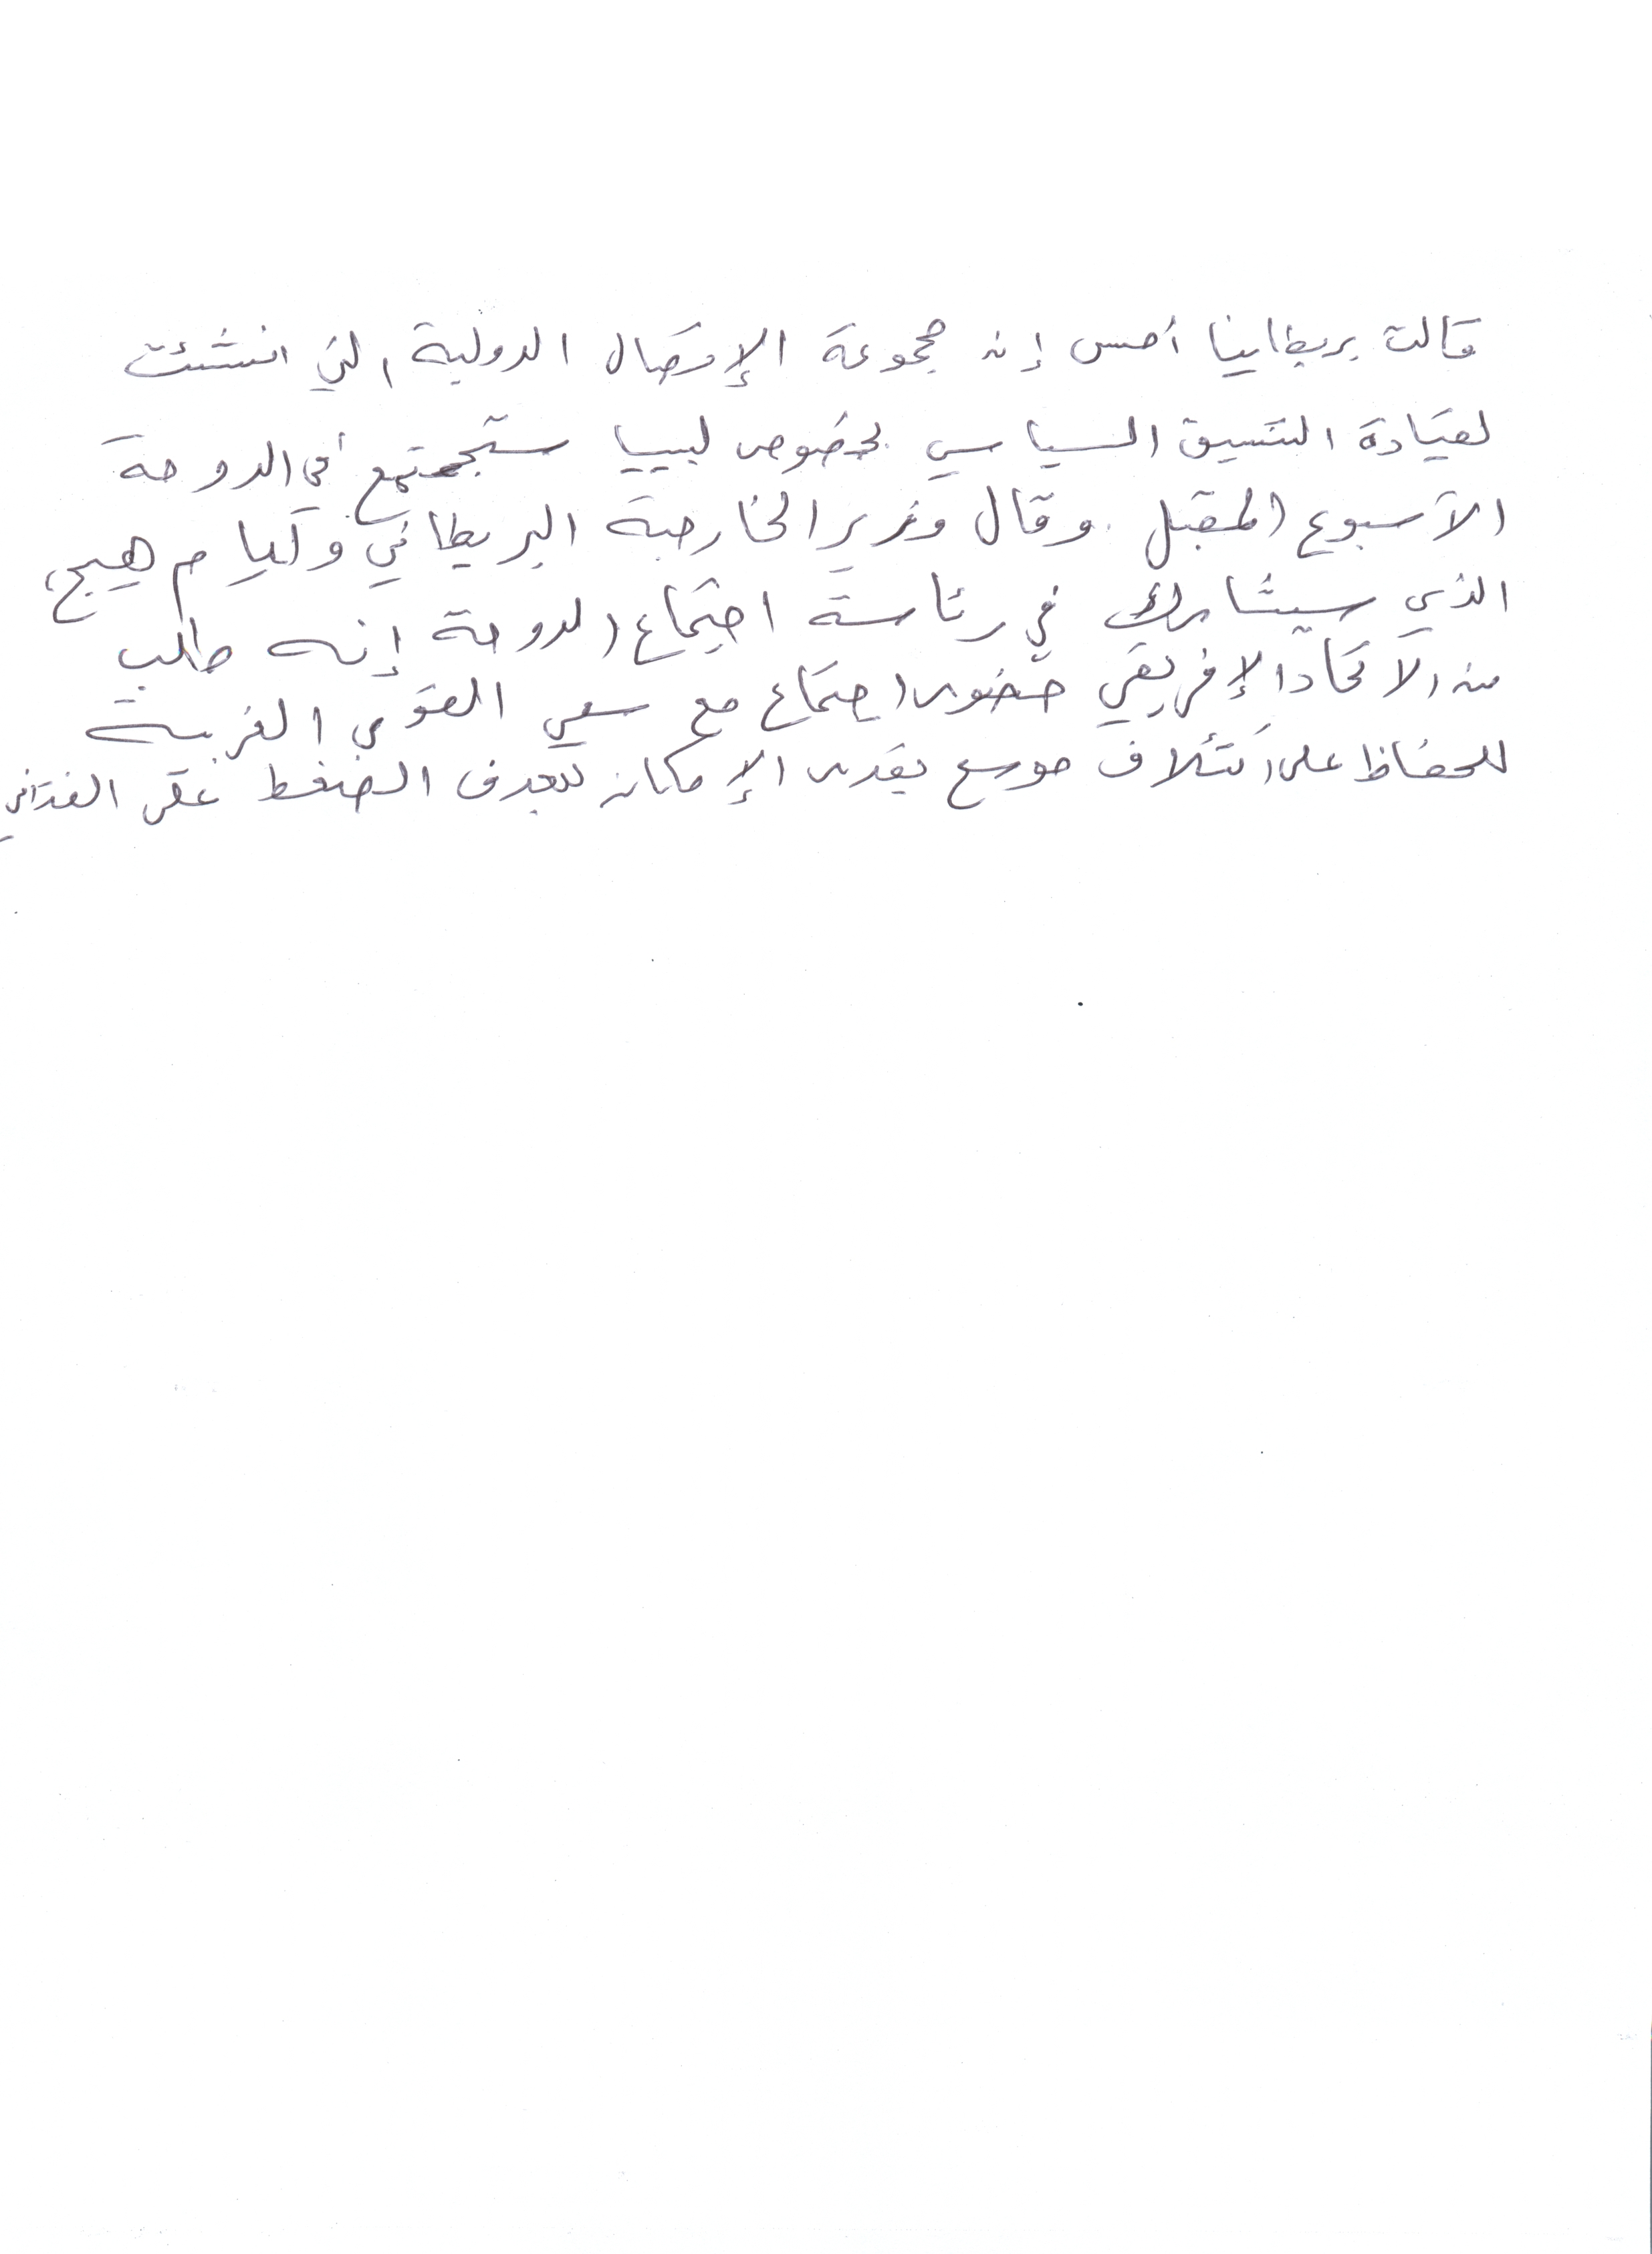 قالت بريطانيا أمس إن مجموعة الإتصال الدولية التي انشئت
لقيادة التنسيق السياسي بخصوص ليبيا ستجتمع في الدوحة
الأسبوع المقبل. وقال وزير الخارجية البريطاني وليام هيج،
الذي سيشارك في رئاسة اجتماع الدوحة إنه طلب
من الاتحاد الإفريقي حضور اجتماع مع سعي القوى الغربية
للحفاظ على ائتلاف موسع بقدر الإمكان بهدف الضغط على القذافي